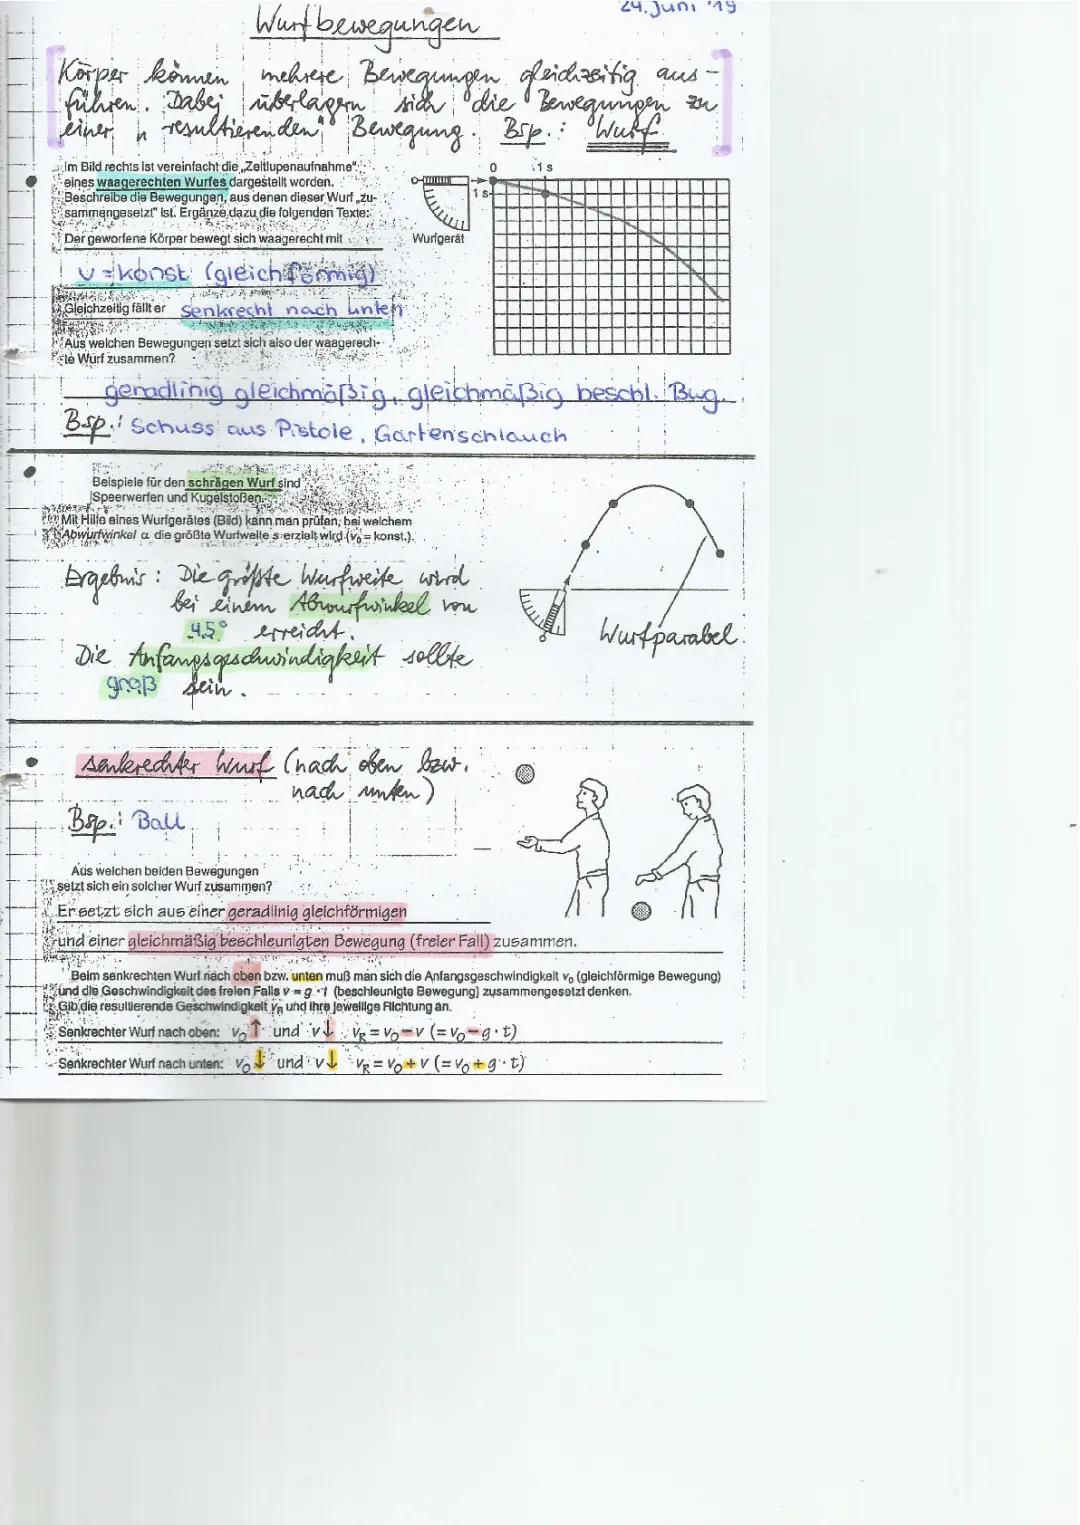 24. Juni '19
Wurfbewegungen
Körper können mehrere Bewegungen gleichzeitig aus-
führen. Dabei überlagern sich die Bewegungen zu
einer "resultierenden" Bewegung. Bsp.: Wurf
Im Bild rechts ist vereinfacht die „Zeitlupenaufnahme"
eines waagerechten Wurfes dargestellt worden.
Beschreibe die Bewegungen, aus denen dieser Wurf „zu-
sammengesetzt" ist. Ergänze dazu die folgenden Texte:
Der geworfene Körper bewegt sich waagerecht mit
v = konst (gleichförmig)
Gleichzeitig fällt er senkrecht nach unten
Aus welchen Bewegungen setzt sich also der waagerech-
te Wurf zusammen?
0 1 s
1 s
Wurfgerät
geradlinig gleichmäßig, gleichmäßig beschl. Bwg.
Bsp.: Schuss aus Pistole, Gartenschlauch
Beispiele für den schrägen Wurf sind
Speerwerfen und Kugelstoßen.
Mit Hilfe eines Wurfgerätes (Bild) kann man prüfen, bei welchem
Abwurfwinkel α die größte Wurfweite s erzielt wird (v₀ = konst.).
Ergebnis: Die größte Wurfweite wird
bei einem Abwurfwinkel von
45° erreicht.
Die Anfangsgeschwindigkeit sollte
groß sein.
Wurfparabel.
senkrechter Wurf (nach oben bzw.
nach unten)
Bsp.: Ball
Aus welchen beiden Bewegungen
setzt sich ein solcher Wurf zusammen?
Er setzt sich aus einer geradlinig gleichförmigen
und einer gleichmäßig beschleunigten Bewegung (freier Fall) zusammen.
Beim senkrechten Wurf nach oben bzw. unten muß man sich die Anfangsgeschwindigkeit v₀ (gleichförmige Bewegung)
und die Geschwindigkeit des freien Falls v = g · t (beschleunigte Bewegung) zusammengesetzt denken.
Gib die resultierende Geschwindigkeit v_R und ihre jeweilige Richtung an.
Senkrechter Wurf nach oben: v₀ ↑ und v ↓ v_R = v₀ − v (= v₀ − g · t)
Senkrechter Wurf nach unten: v₀ ↓ und v ↓ v_R = v₀ + v (= v₀ + g · t)